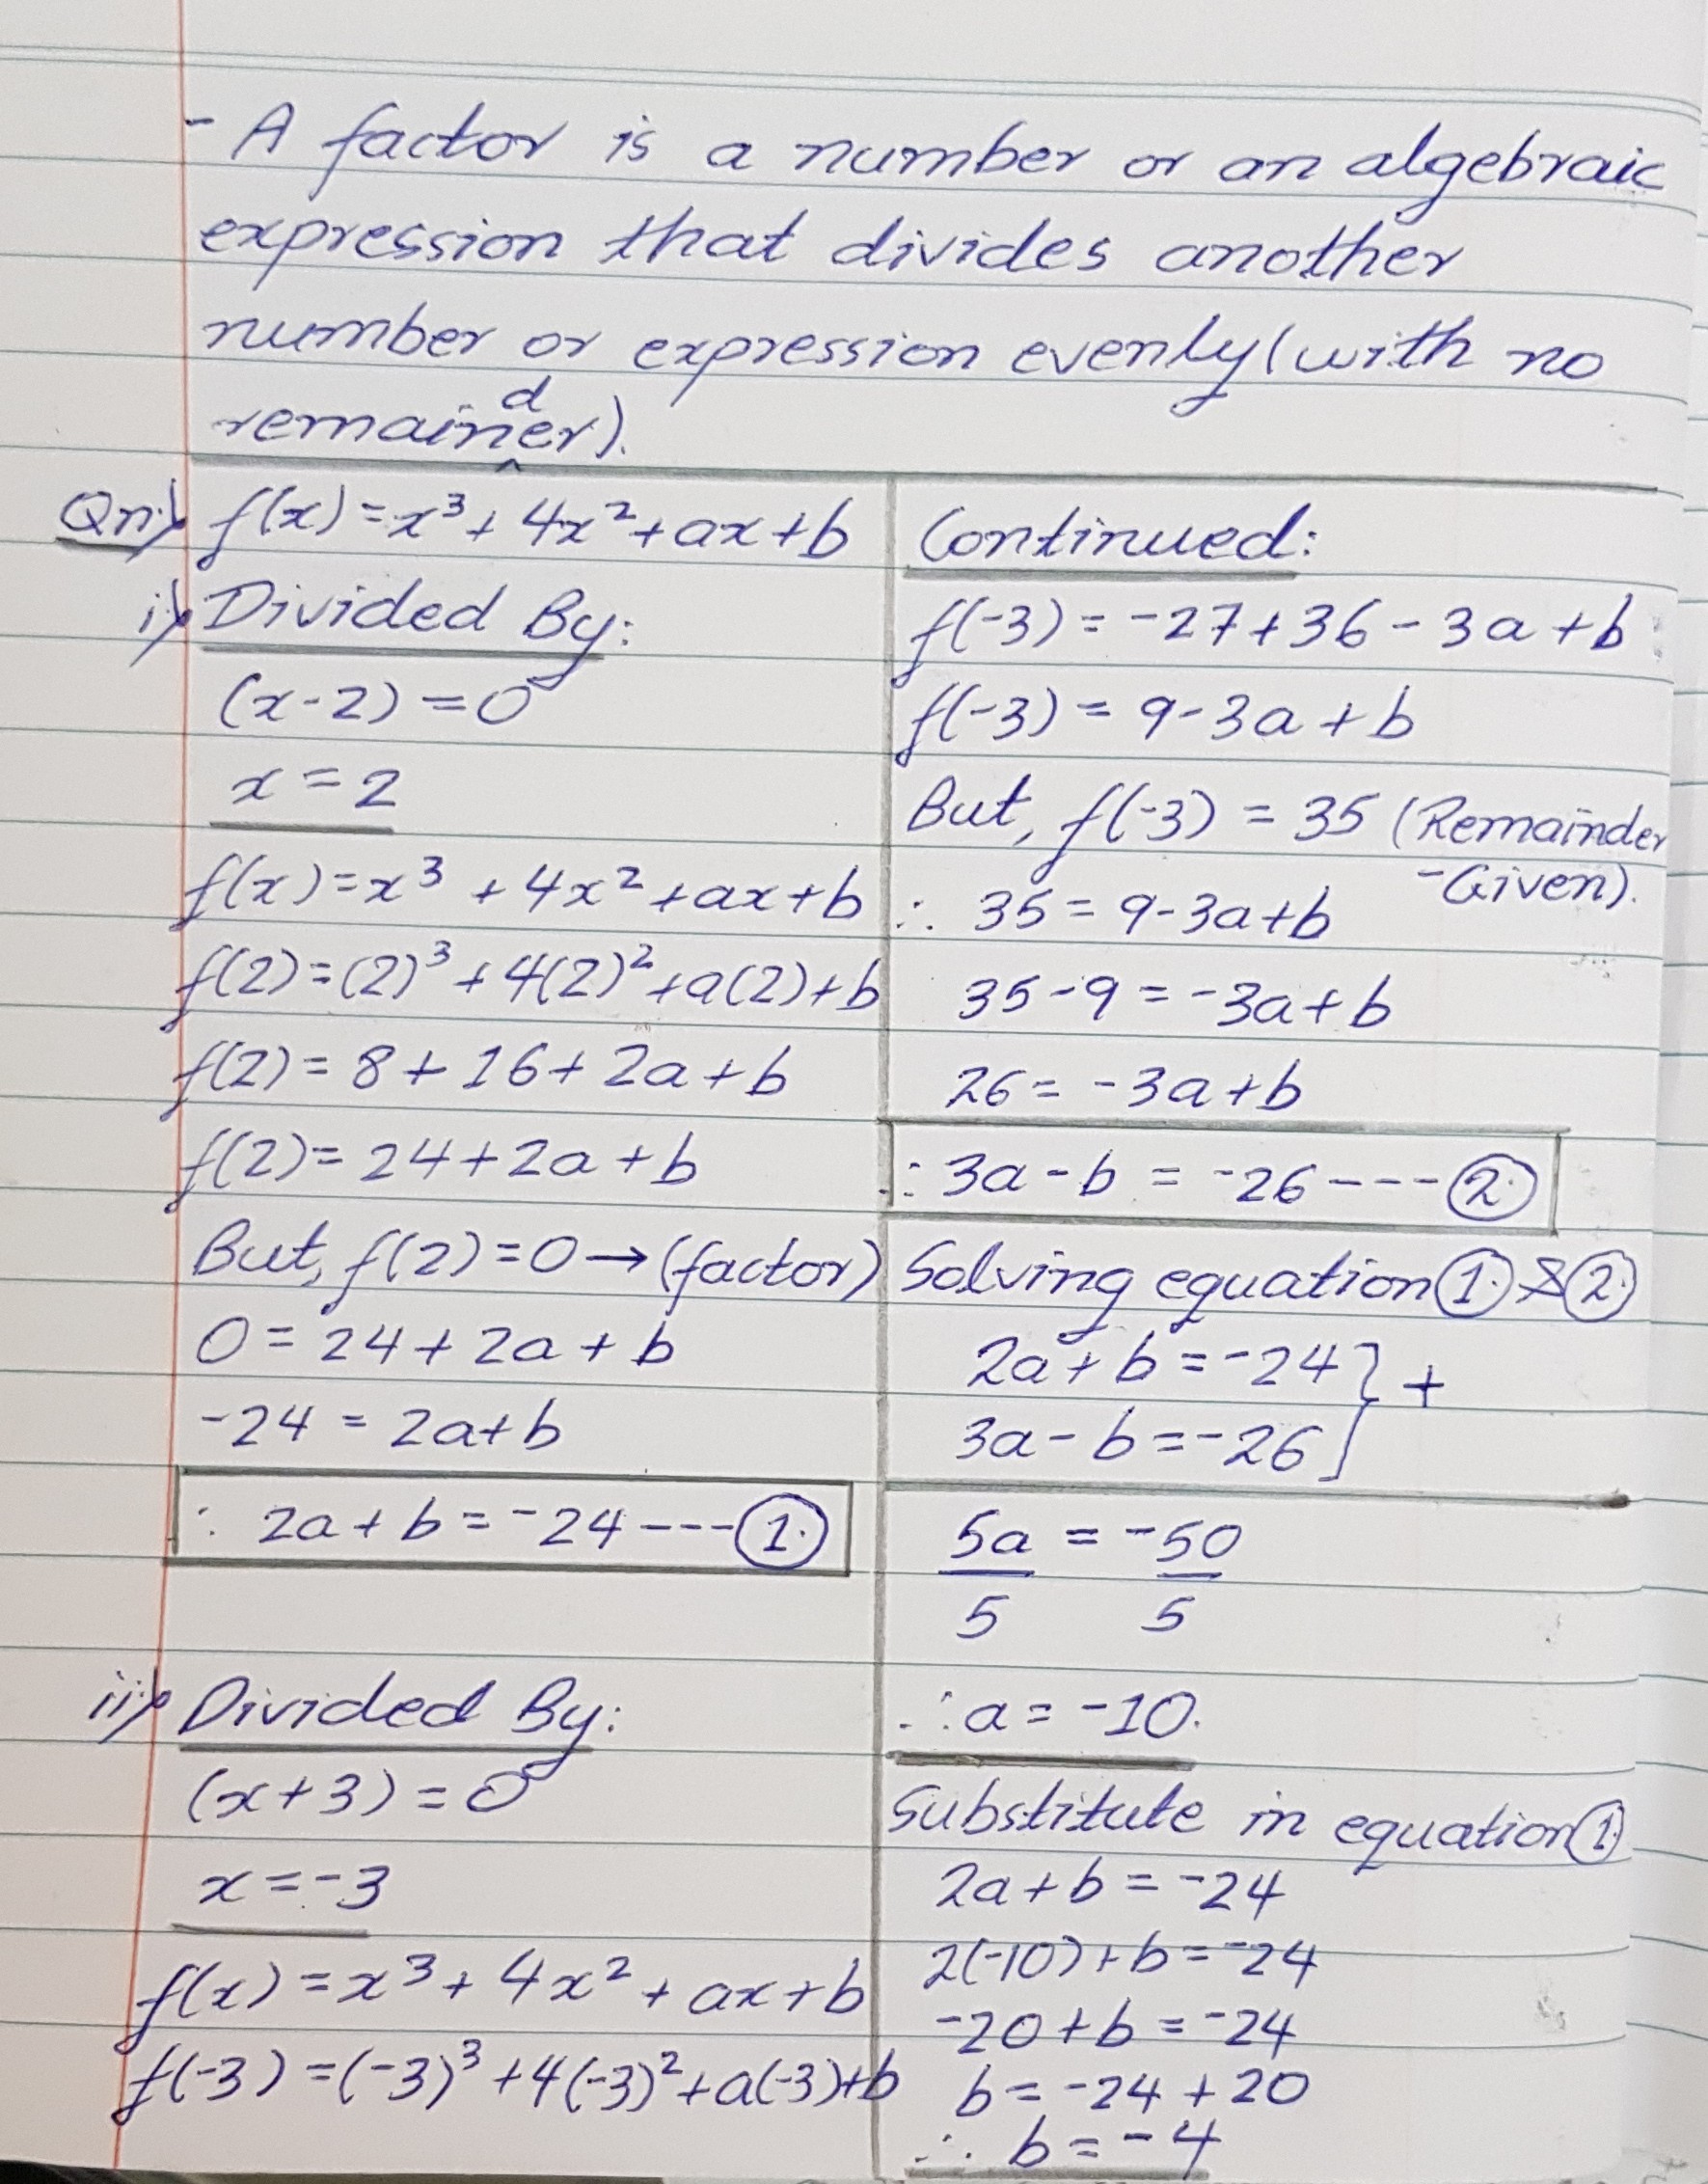 - A factor is a number or an algebraic
expression that divides another
number or expression evenly (with no
remainder).
Qn) f(x) = x³ + 4x² + ax + b
i) Divided By:
(x - 2) = 0
x = 2
f(x) = x³ + 4x² + ax + b
f(2) = (2)³ + 4(2)² + a(2) + b
f(2) = 8 + 16 + 2a + b
f(2) = 24 + 2a + b
But, f(2) = 0 → (factor)
0 = 24 + 2a + b
-24 = 2a + b
∴ 2a + b = -24 --- ①
ii) Divided By:
(x + 3) = 0
x = -3
f(x) = x³ + 4x² + ax + b
f(-3) = (-3)³ + 4(-3)² + a(-3) + b
Continued:
f(-3) = -27 + 36 - 3a + b
f(-3) = 9 - 3a + b
But, f(-3) = 35 (Remainder
- Given).
∴ 35 = 9 - 3a + b
35 - 9 = -3a + b
26 = -3a + b
∴ 3a - b = -26 --- ②
Solving equation ① & ②
2a + b = -24 } +
3a - b = -26
5a = -50
5 5
∴ a = -10.
Substitute in equation ①
2a + b = -24
2(-10) + b = -24
-20 + b = -24
b = -24 + 20
∴ b = -4